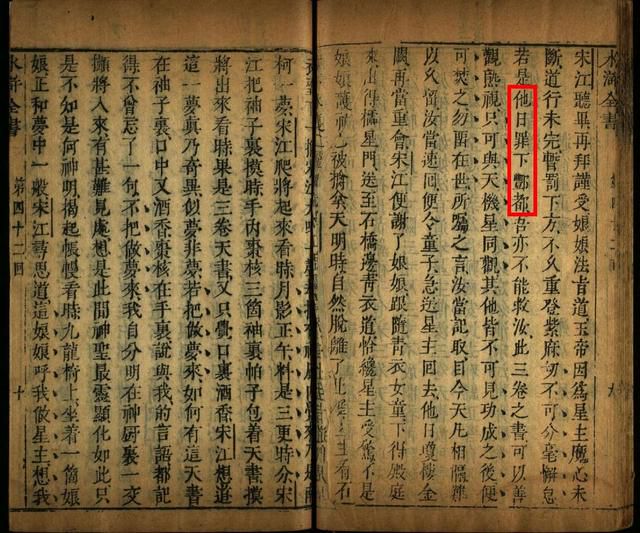 水滸全書
宋江聽畢再拜謹受娘娘法旨道玉帝因爲星主魔心未
斷道行未完暫罰下方不久重登紫府切不可分毫懈怠
若是他日罪下酆都吾亦不能救汝此三卷之書可以善
觀熟視只可與天機星同觀其他皆不可見功成之後便
可焚之勿留在世所囑之言汝當記取目今天凡相隔難
以久留汝當速回便令童子急送星主回去他日瓊樓金
闕再當重會宋江便謝了娘娘跟隨青衣女童下得殿庭
來出得櫺星門送至石橋邊青衣道恰纔星主受驚不是
娘娘護祐已被擒拿天明時自然脫離了此難星主看石
柯一夢宋江爬將起來看時月影正午料是三更時分宋
江把袖子裏摸時手內棗核三箇袖裏帕子包着天書摸
將出來看時果是三卷天書又只覺口裏酒香宋江想道
這一夢真乃奇異似夢非夢若把做夢來如何有這天書
在袖子裏口中又酒香棗核在手裏說與我的言語都記
得不曾忘了一句不把做夢來我自分明在神廚裏一交
顛將入來有甚難見處想是此間神聖最靈顯化如此只
是不知是何神明揭起帳幔看時九龍椅上坐着一箇娘
娘正和夢中一般宋江尋思道這娘娘呼我做星主想我
水滸全書 第四十二回 十